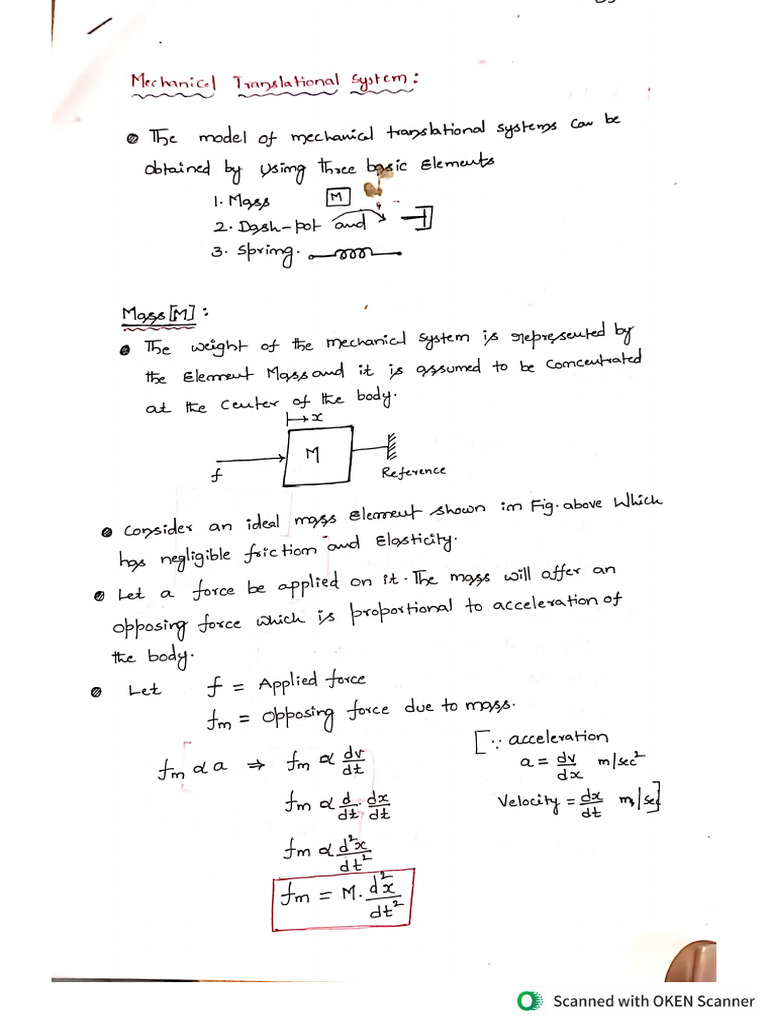 Mechanical Translational System:
The model of mechanical translational systems can be
obtained by using three basic Elements
1. Mass M
2. Dash-pot and
3. Spring.
Mass [M]:
The weight of the mechanical system is represented by
the Element Mass and it is assumed to be Concentrated
at the Center of the body.
x
f M Reference
Consider an ideal mass Element shown in Fig. above Which
has negligible friction and Elasticity.
Let a force be applied on it. The mass will offer an
opposing force which is proportional to acceleration of
the body.
Let f = Applied force
fm = Opposing force due to mass.
fm ∝ a ⇒ fm ∝ dv/dt [∵ acceleration
a = dv/dx m/sec²
fm ∝ d/dt · dx/dt Velocity = dx/dt m/sec]
fm ∝ d²x/dt²
fm = M. d²x/dt²
Scanned with OKEN Scanner